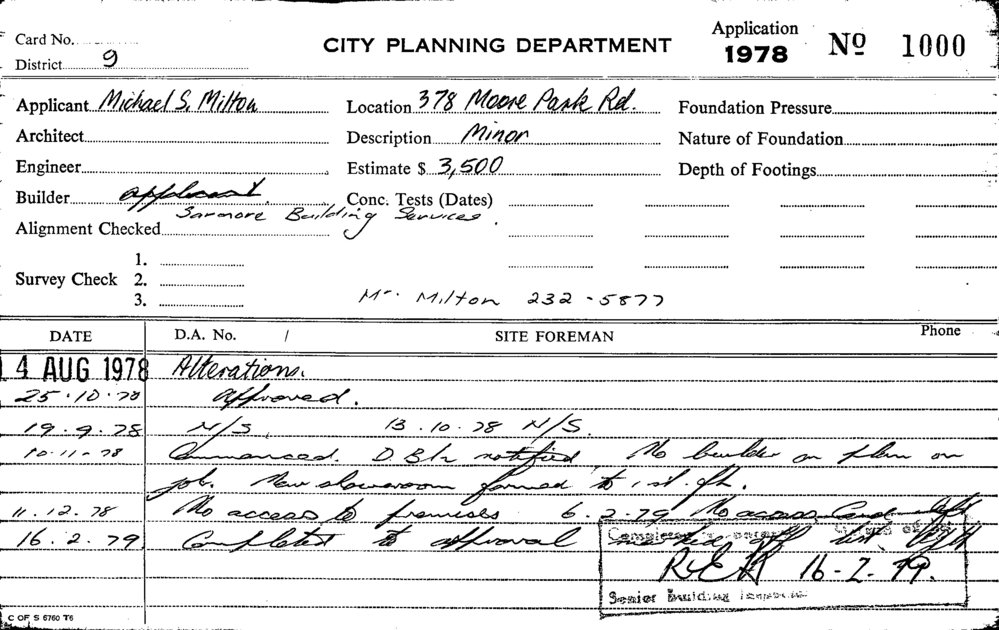 Card No.
District 9
CITY PLANNING DEPARTMENT
Application
1978 No 1000
Applicant Michael S. Milton
Location 378 Moore Park Rd.
Foundation Pressure
Architect
Description Minor
Nature of Foundation
Engineer
Estimate $ 3,500
Depth of Footings
Builder applicant.
Conc. Tests (Dates)
Building Services.
Alignment Checked
Survey Check
1.
2.
3.
Mr. Milton 232-5877
DATE D.A. No. / SITE FOREMAN Phone
4 AUG 1978 Alterations.
25.10.78 Approved.
19.9.78 N/S. 13.10.78 N/S.
10.11.78 Commenced. notified. No builder or plan on
job. New formed to 1st. flr.
11.12.78 No access to premises 6.2.79 No access Card left
16.2.79 Completed to approval
16-2-79.
Senior Building Inspector
C OF S 5760 T6